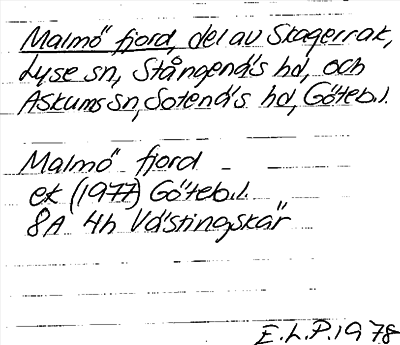 Malmö fjord, del av Skagerrak,
Lyse sn, Stångenäs hd, och
Askums sn, Sotenäs hd, Göteb.l.
Malmö fjord
ek (1977) Göteb.l.
8A 4h Västingskär
E.L.P. 1978